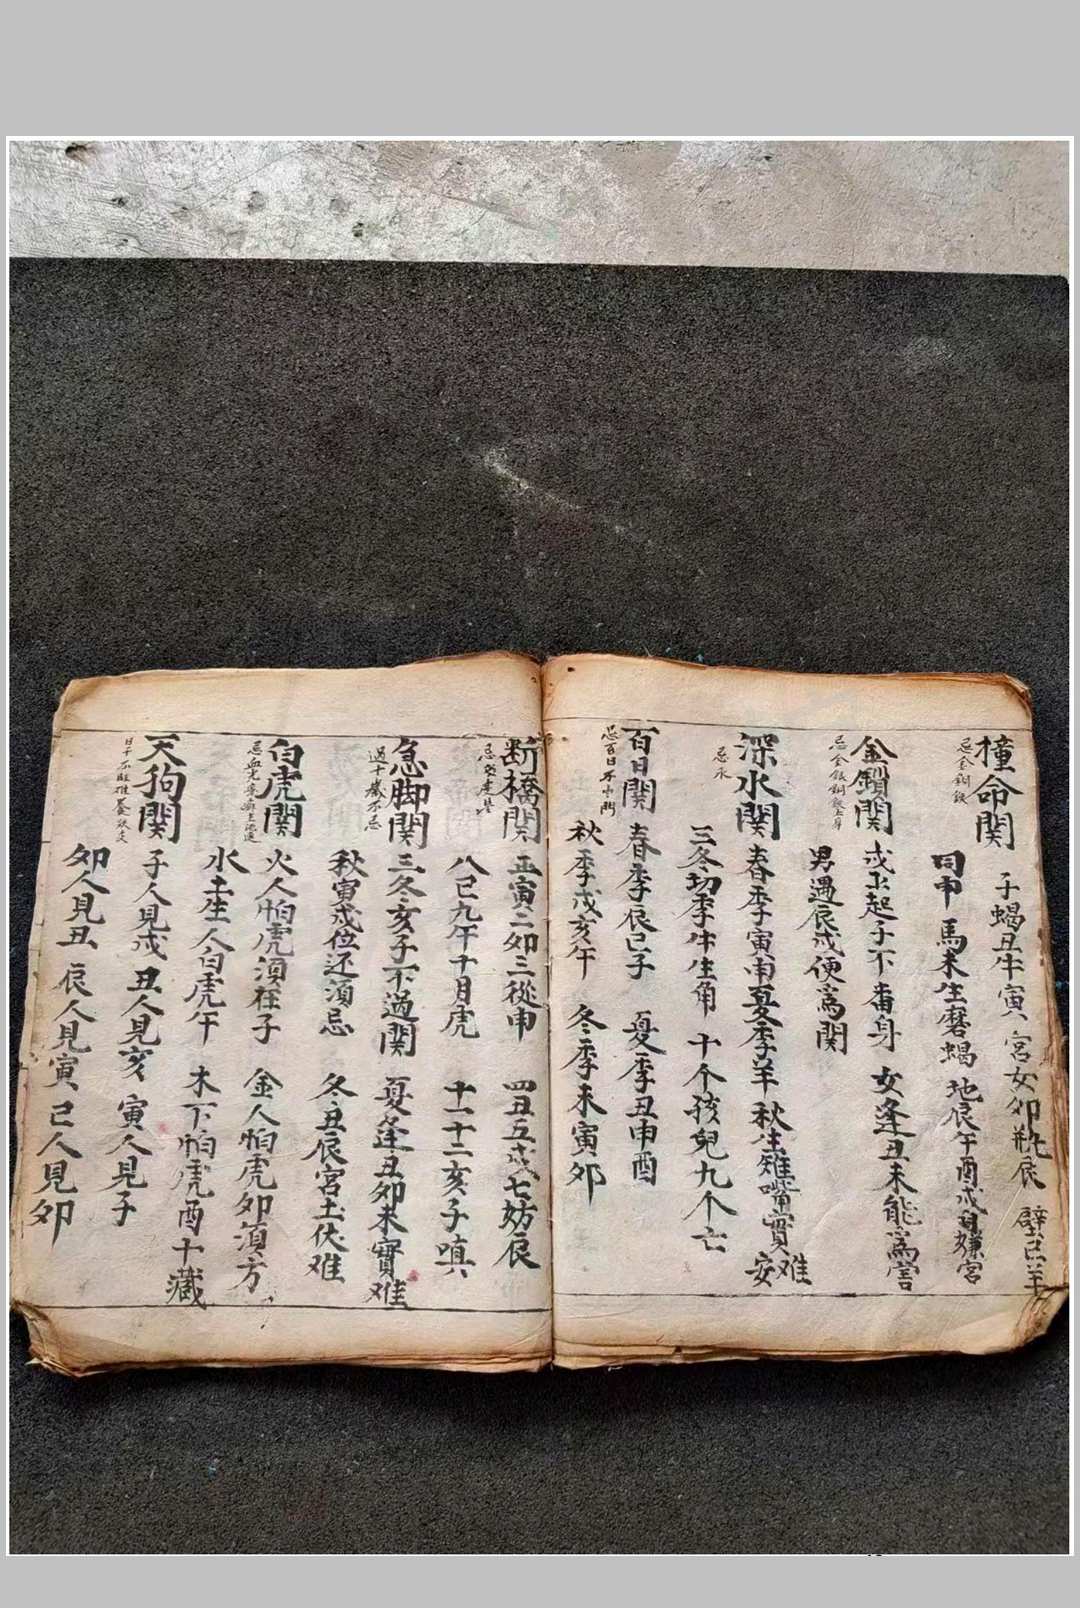 撞命関
忌金銅銀
子蝎丑牛寅 宮女卯瓶辰 壁巳羊
同申 馬未生磨蝎 地辰午酉戌自嫌宮
金鎖関
忌金銀銅鉄上身
戍上起子不畨身 女逢丑未能為害
男遇辰戌便為関
深水関
忌水
春季寅南夏季羊 秋生雉嘴實难安
三冬切季牛生角 十个孩兒九个亡
百日関
忌百日不出門
春季辰巳子 夏季丑申酉
秋季戌亥午 冬季未寅卯
断橋関
忌
正寅二卯三從申 四丑五戌七妨辰
八巳九午十月虎 十一十二亥子嗔
急脚関
過十歲不忌
三冬亥子不過関 夏逢丑卯未實难
秋寅戌位还湏忌 冬丑辰宮土伏难
白虎関
忌血光
火人怕虎須在子 金人怕虎卯湏方
水土生人白虎午 木下怕虎酉十藏
天狗関
子人見戌 丑人見亥 寅人見子
卯人見丑 辰人見寅 巳人見卯